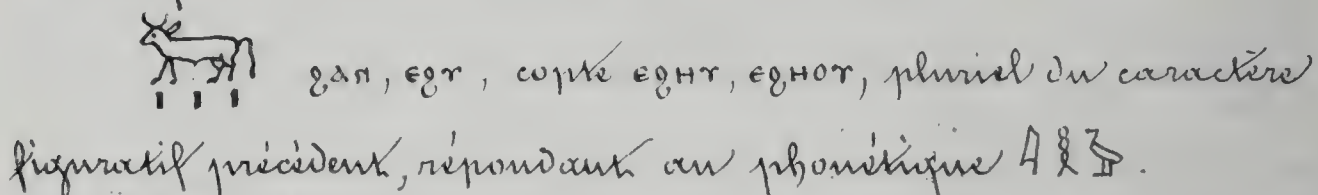 𓃒𓏥 ϩⲁⲛ, ⲉϩⲩ, copte ⲉϩⲏⲩ, ⲉϩⲏⲟⲩ, pluriel du caractère
figuratif précédent, répondant au phonétique 𓇋𓎛.